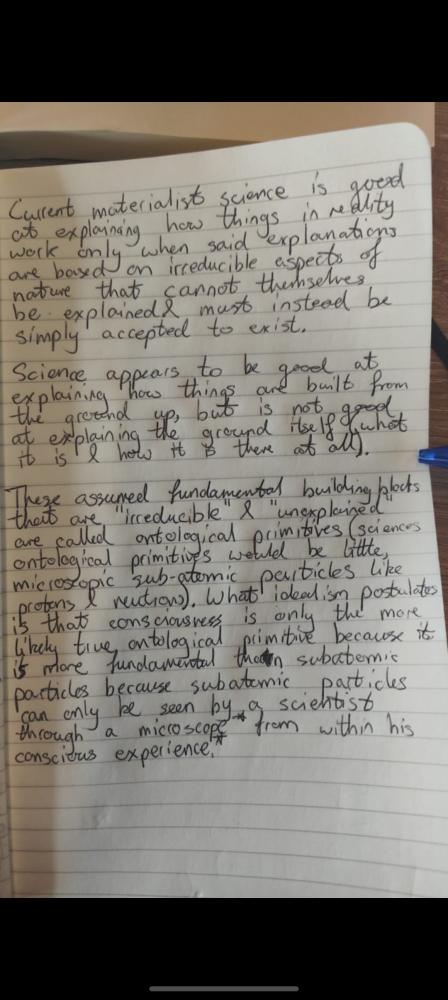 Current materialist science is good
at explaining how things in reality
work only when said explanations
are based on irreducible aspects of
nature that cannot themselves
be explained & must instead be
simply accepted to exist.
Science appears to be good at
explaining how things are built from
the ground up, but is not good
at explaining the ground itself (what
it is & how it is there at all).
These assumed fundamental building blocks
that are "irreducible" & "unexplained"
are called ontological primitives (sciences
ontological primitives would be little,
microscopic sub-atomic particles like
protons & neutrons). What idealism postulates
is that consciousness is only the more
likely true ontological primitive because it
is more fundamental than subatomic
particles because subatomic particles
can only be seen by a scientist
through a microscope* from within his
conscious experience.*